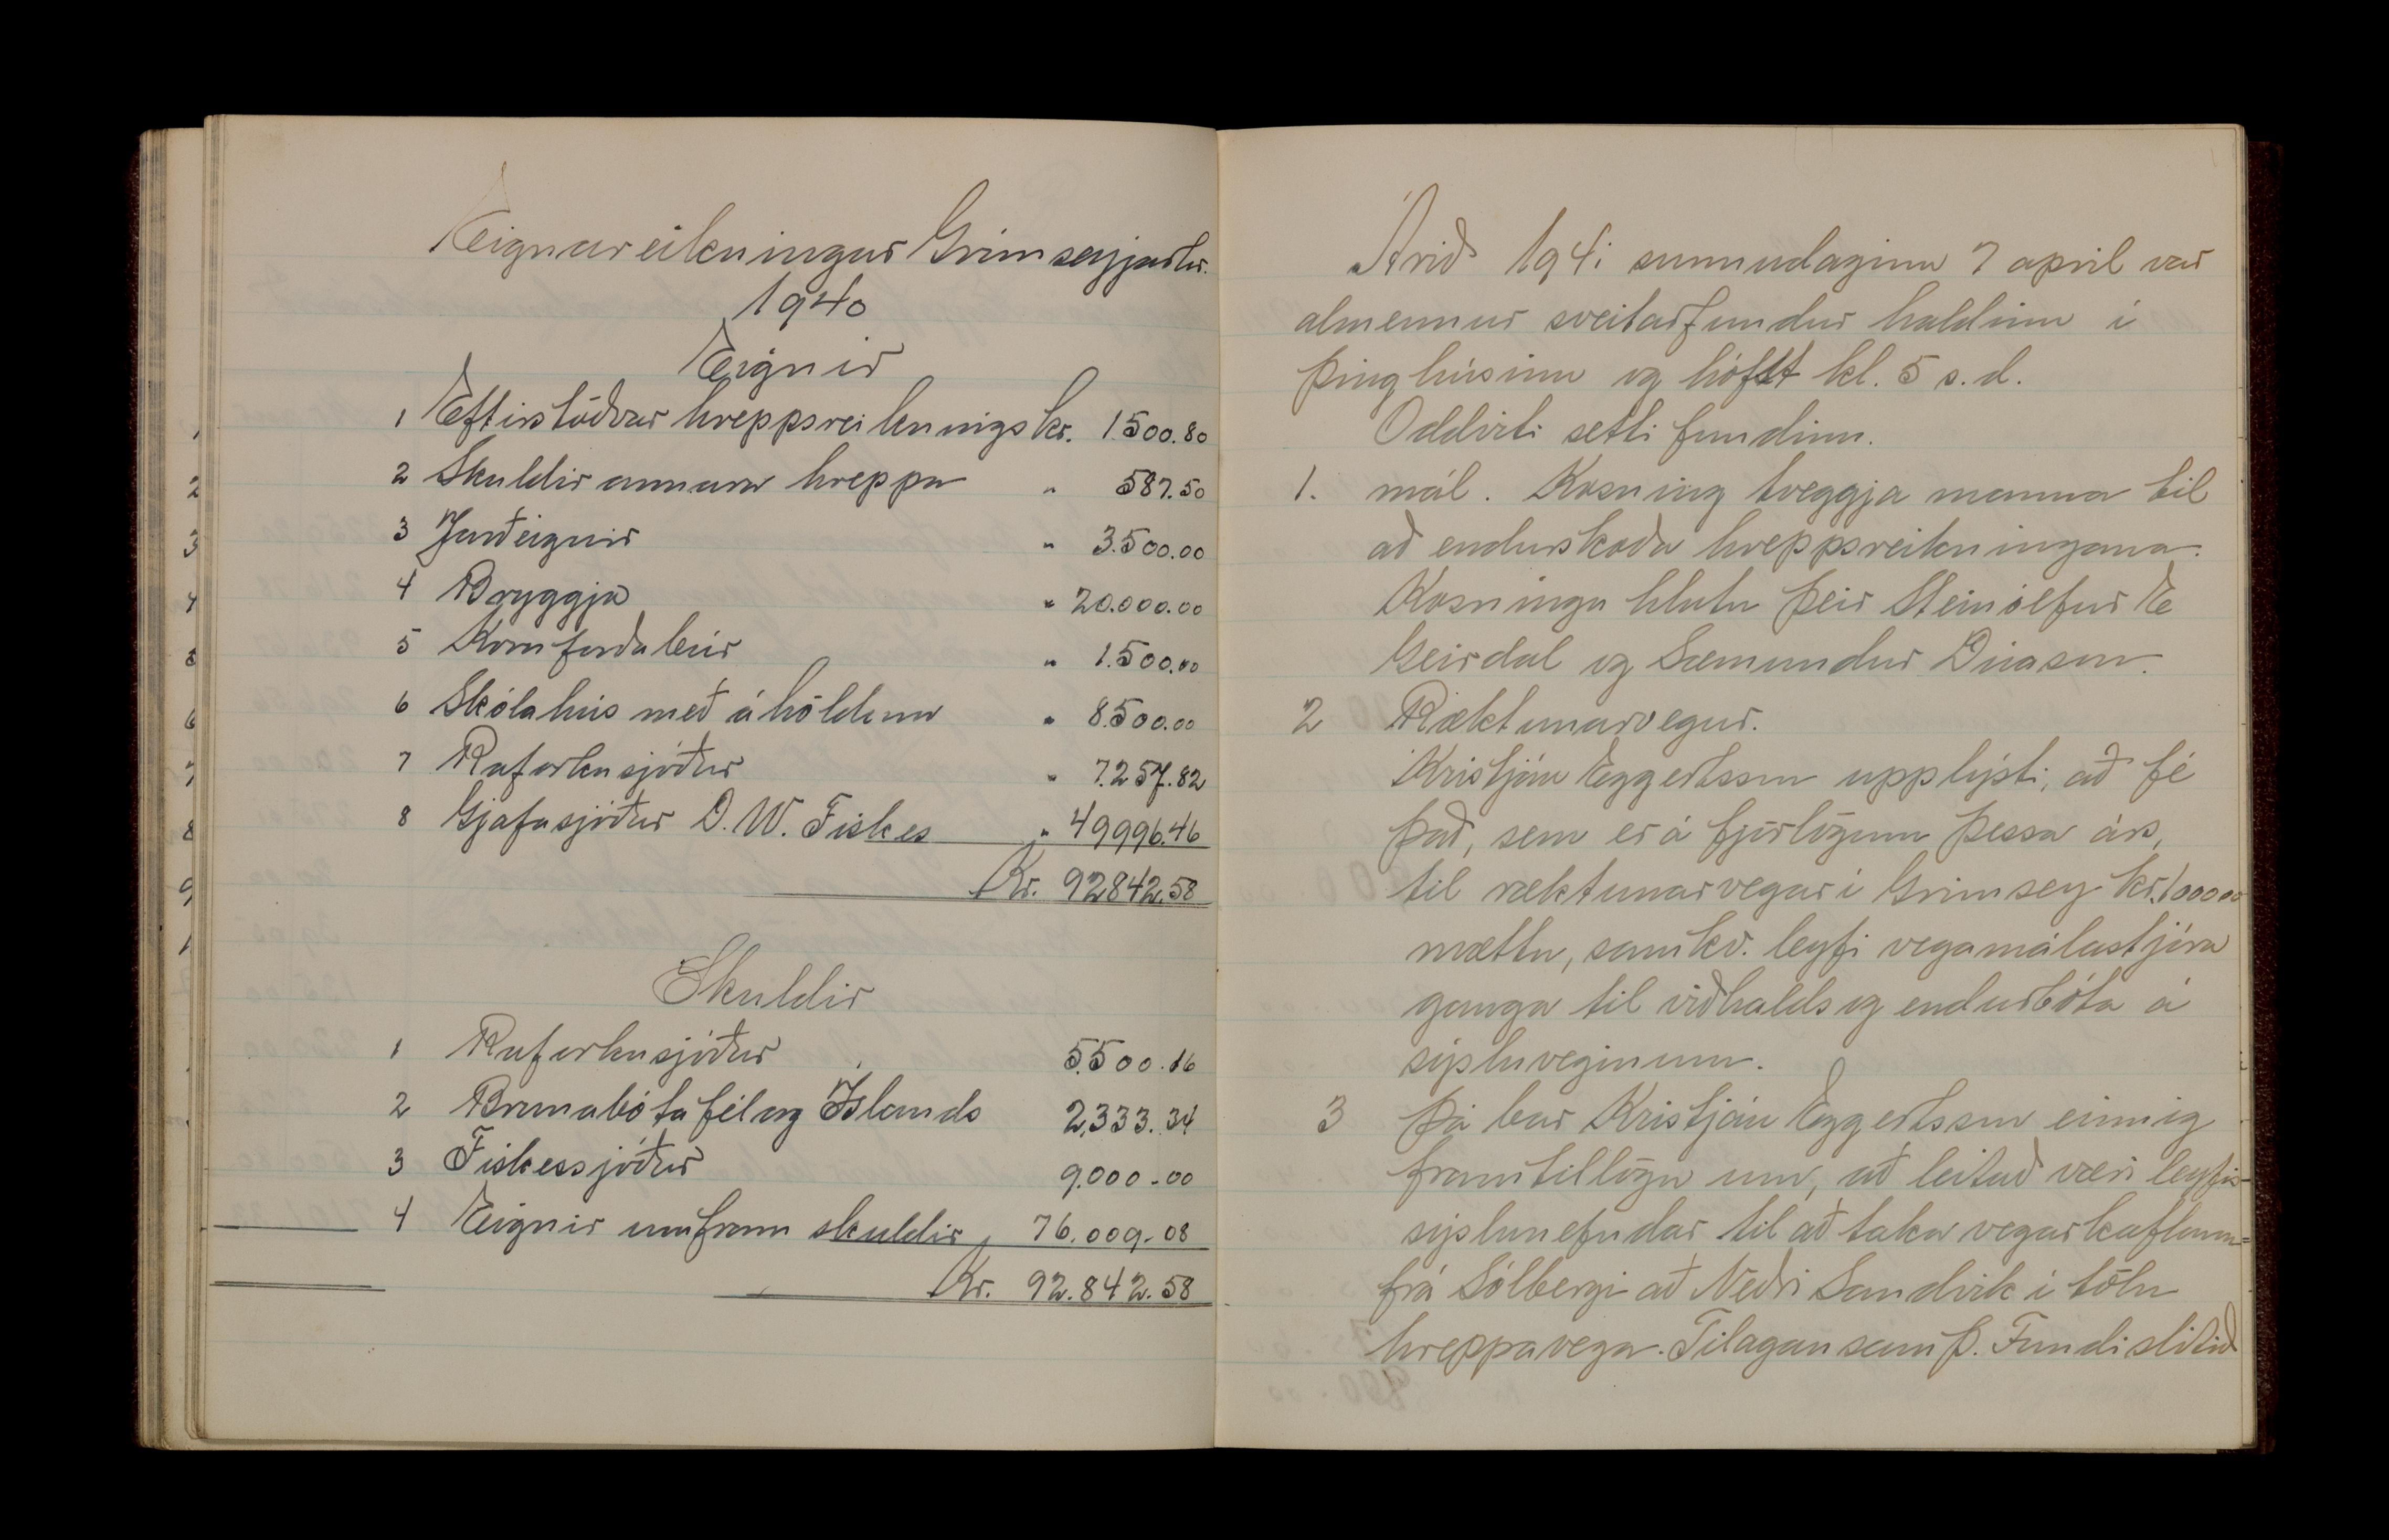 Eignareikningur Grímseyjarhr.
1940
Eignir
1 Eftirstöðvar hreppsreiknings kr. 1.500.80
2 Skuldir annara hreppa " 587.50
3 Jarðeignir " 3.500.00
4 Bryggja " 20.000.00
5 Kornforðabúr " 1.500.00
6 Skólahús með áhöldum " 8.500.00
7 Raforkusjóður " 7.257.82
8 Gjafasjóður D. W. Fiskes " 49996.46
Kr. 92842.58
Skuldir
1 Raforkusjóður 5.500.16
2 Brunabótafélag Íslands 2.333.34
3 Fiskessjóður 9.000-00
4 Eignir umfram skuldir 76.009-08
Kr. 92.842.58
Árið 1941 sunnudaginn 7 apríl var
almennur sveitarfundur haldinn í
þinghúsinu og hófst kl. 5 s.d.
Oddviti setti fundinn.
1. mál. Kosning tveggja manna til
að endurskoða hreppsreikningana.
Kosningu hlutu þeir Steinólfur E
Geirdal og Sæmundur Dúason.
2 Ræktunarvegur.
Kristján Eggertsson upplýsti, að fé
það, sem er á fjárlögum þessa árs,
til ræktunarvegar í Grímsey kr. 1000 00
mættu, samkv. leyfi vegamálastjóra
ganga til viðhalds og endurbóta á
sýsluveginum.
3 Þá bar Kristján Eggertsson einnig
fram tillögu um, að leitað væri leyfis
sýslunefndar til að taka vegarkaflann
frá Sólbergi að Neðri Sandvík í tölu
hreppavega. Tilagan samþ. Fundi slitið